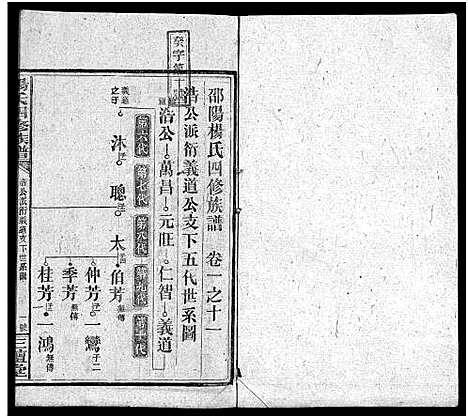 癸字第十
邵陽楊氏四修族譜 卷一之十一
浩公派衍義道公支下五代世系圖
浩公 萬昌 元旺 仁智 義道
第六代 第七代 第八代 第九代 第十代
義道之子 沐 聰 太 伯芳 無傳
仲芳 一鸞 子二
季芳 無傳
桂芳 一鴻 無傳
楊氏四修族譜
浩公派衍義道支下世系圖
一號
三鱣堂